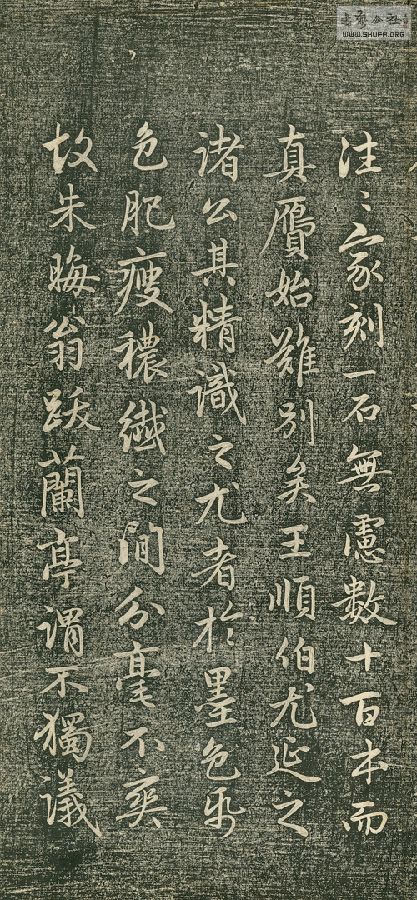 往〻家刻一石無慮數十百本而
真贗始難別矣王順伯尤延之
諸公其精識之尤者於墨色帋
色肥瘦穠纖之間分毫不爽
故朱晦翁跋蘭亭謂不獨議
書藝公社
WWW.SHUFA.ORG